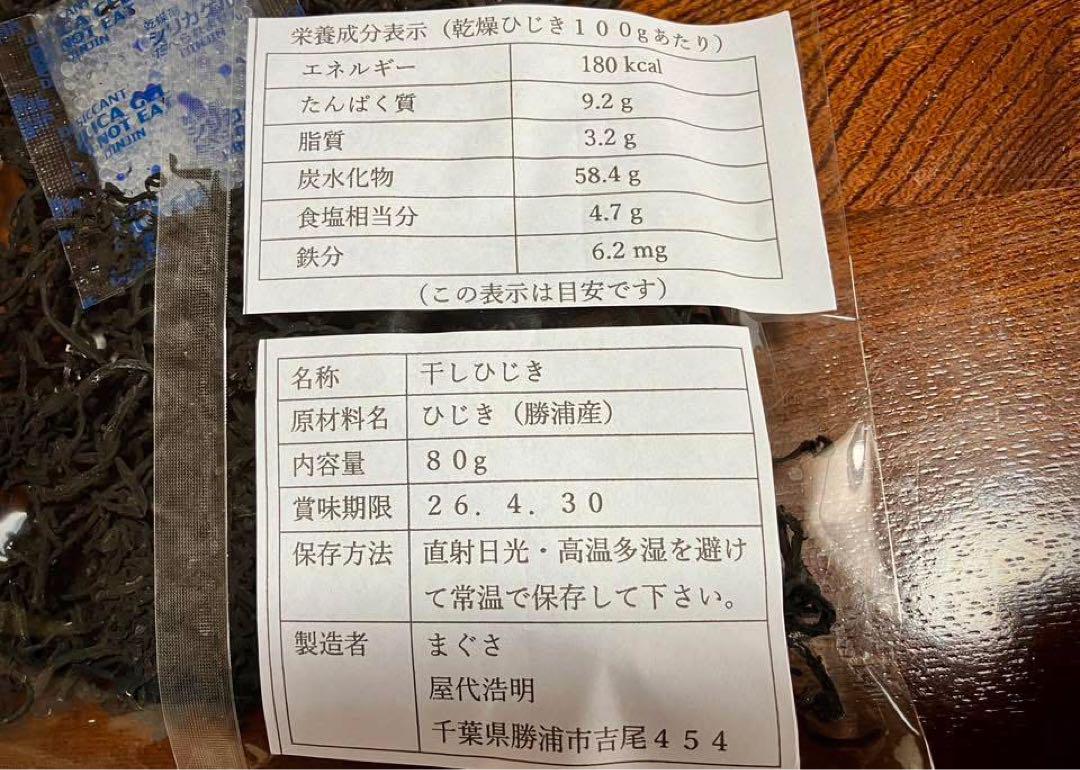 乾燥剤
シリカゲル
ICCANT
LICA
NOT EAT
栄養成分表示（乾燥ひじき１００gあたり）
エネルギー 180 kcal
たんぱく質 9.2 g
脂質 3.2 g
炭水化物 58.4 g
食塩相当分 4.7 g
鉄分 6.2 mg
（この表示は目安です）
名称 干しひじき
原材料名 ひじき（勝浦産）
内容量 ８０g
賞味期限 ２６．４．３０
保存方法 直射日光・高温多湿を避け
て常温で保存して下さい。
製造者 まぐさ
屋代浩明
千葉県勝浦市吉尾４５４